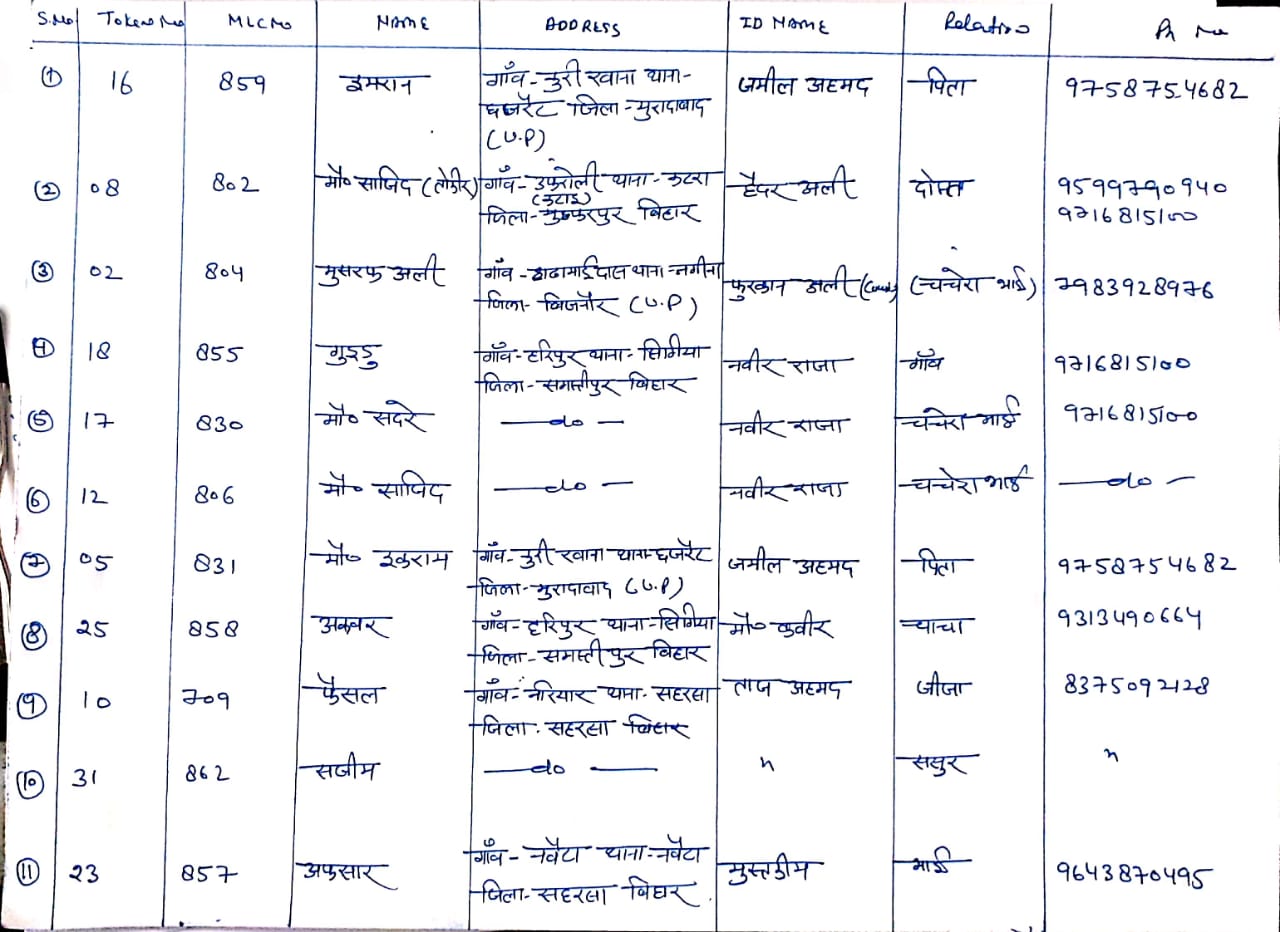 S.No Token No MLC No NAME ADDRESS ID NAME Relation Ph No
① 16 859 इमरान गाँव- थाना- जमील अहमद पिता 9758754682
छजरैट जिला-मुरादाबाद
(U.P)
② 08 802 मौ० साजिद गाँव- थाना-कटरा हैदर अली दोस्त 9599790940
जिला- बिहार 9716815100
③ 02 804 मुसरफ अली गाँव- थाना-नगीना फुरकान अली (चचेरा भाई) 7983928976
जिला-बिजनौर (U.P)
④ 18 855 गुड्डु गाँव-हरिपुर थाना- नवीर राजा गाँव 9716815100
जिला-समस्तीपुर बिहार
⑤ 17 830 मौ० सदरे —do— नवीर राजा चचेरा भाई 9716815100
⑥ 12 806 मौ० साजिद —do— नवीर राजा चचेरा भाई —do—
⑦ 05 831 मौ० इकराम गाँव- थाना-छजरैट जमील अहमद पिता 9758754682
जिला-मुरादाबाद (U.P)
⑧ 25 858 अकबर गाँव-हरिपुर थाना- मौ० कबीर चाचा 9313490664
जिला-समस्तीपुर बिहार
⑨ 10 709 फैसल गाँव-नरियार थाना-सहरसा ताज अहमद जीजा 8375092128
जिला-सहरसा बिहार
⑩ 31 862 सजीम —do— " ससुर "
⑪ 23 857 अफसार गाँव-नवैटा थाना-नवैटा मुस्तकीम भाई 9643870495
जिला-सहरसा बिहार